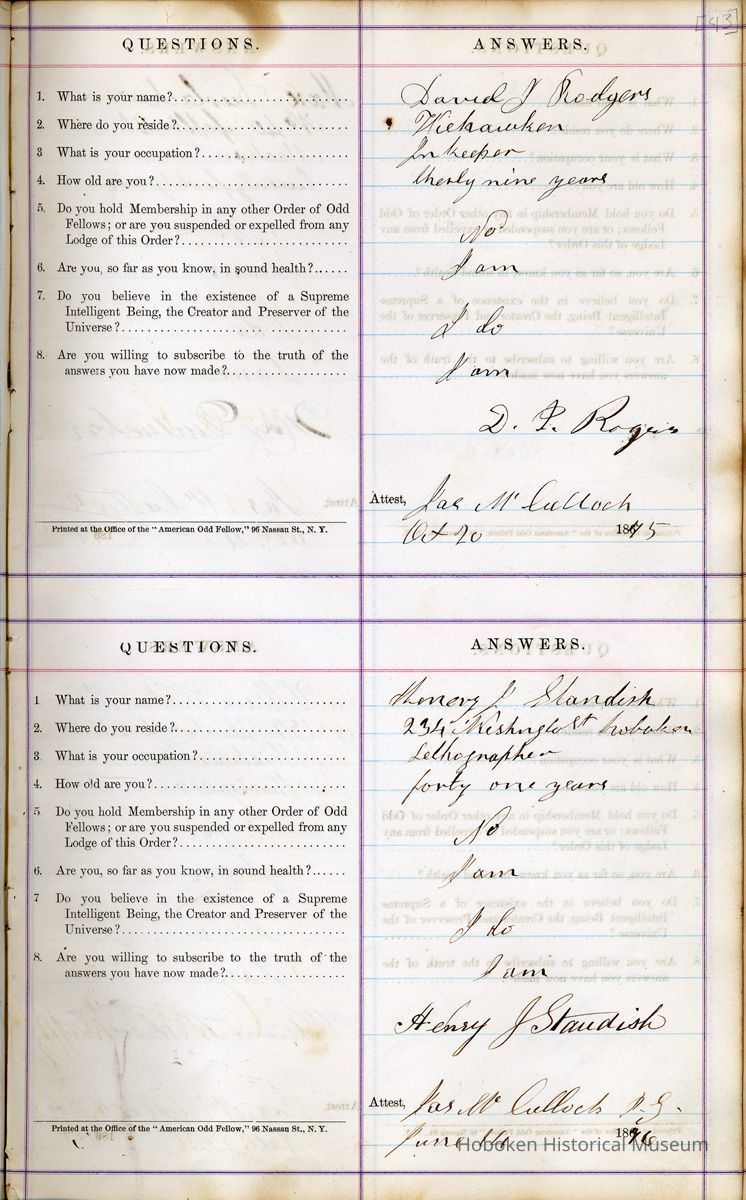 [43]
QUESTIONS. ANSWERS.
1. What is your name?........ David J Rodgers
2. Where do you reside?........ Wiehawken
3 What is your occupation?........ Inkeeper
4. How old are you?........ therty nine years
5. Do you hold Membership in any other Order of Odd
Fellows; or are you suspended or expelled from any
Lodge of this Order?........ No
6. Are you, so far as you know, in sound health?...... I am
7. Do you believe in the existence of a Supreme
Intelligent Being, the Creator and Preserver of the
Universe?........ I do
8. Are you willing to subscribe to the truth of the
answers you have now made?........ I am
D. Rogers
Attest, Jas McCulloch
Printed at the Office of the "American Odd Fellow," 96 Nassau St., N. Y. Oct 20 1875
QUESTIONS. ANSWERS.
1 What is your name?........ Henery J Standish
2. Where do you reside?........ 234 Washington St Hoboken
3. What is your occupation?........ Lethographer
4. How old are you?........ forty one years
5 Do you hold Membership in any other Order of Odd
Fellows; or are you suspended or expelled from any
Lodge of this Order?........ No
6. Are you, so far as you know, in sound health?...... I am
7 Do you believe in the existence of a Supreme
Intelligent Being, the Creator and Preserver of the
Universe?........ I do
8. Are you willing to subscribe to the truth of the
answers you have now made?........ I am
Henry J Standish
Attest, Jas McCulloch P.G.
Printed at the Office of the "American Odd Fellow," 96 Nassau St., N. Y. June 1876
Hoboken Historical Museum